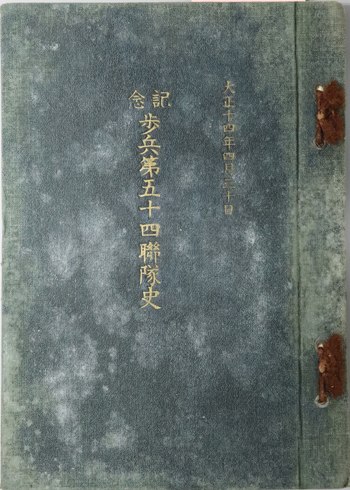 大正十四年四月二十日
記念
歩兵第五十四聯隊史